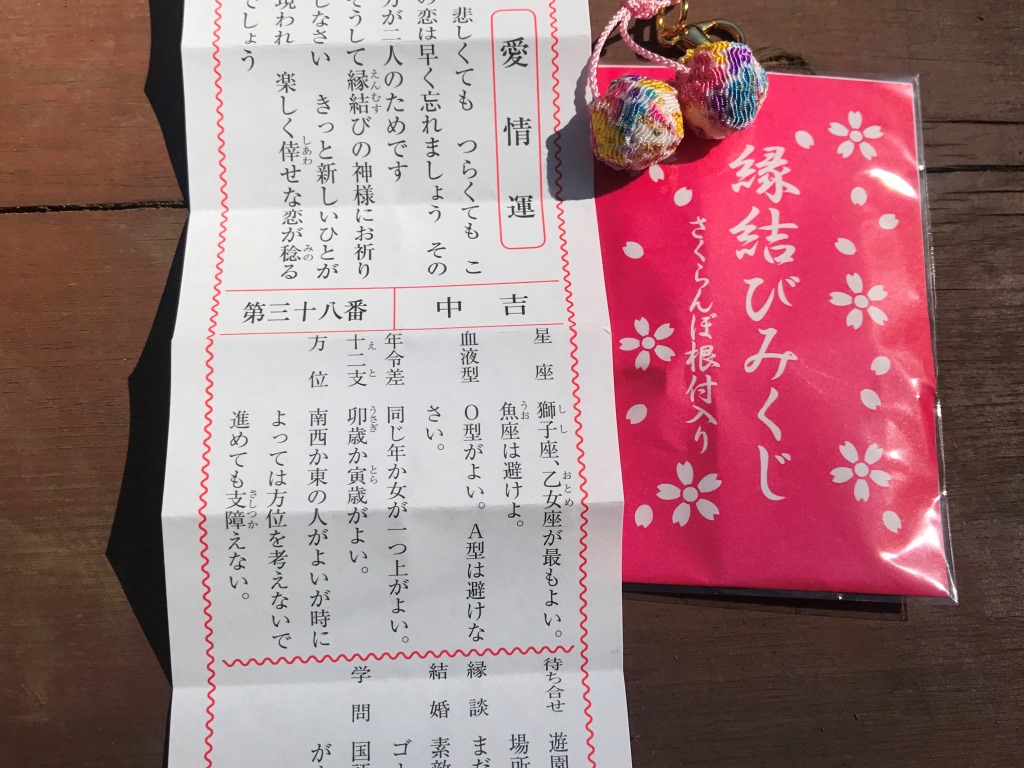 愛情運
悲しくても　つらくても　こ
の恋は早く忘れましょう　その
方が二人のためです
そうして縁結びの神様にお祈り
しなさい　きっと新しいひとが
現われ　楽しく倖せな恋が稔る
でしょう
中吉
第三十八番
星座　獅子座、乙女座が最もよい。
魚座は避けよ。
血液型　O型がよい。A型は避けな
さい。
年令差　同じ年か女が一つ上がよい。
十二支　卯歳か寅歳がよい。
方位　南西か東の人がよいが時に
よっては方位を考えないで
進めても支障えない。
待ち合せ　遊園
場所
縁談　まだ
結婚　素敵
ゴー
学問　国語
が
縁結びみくじ
さくらんぼ根付入り